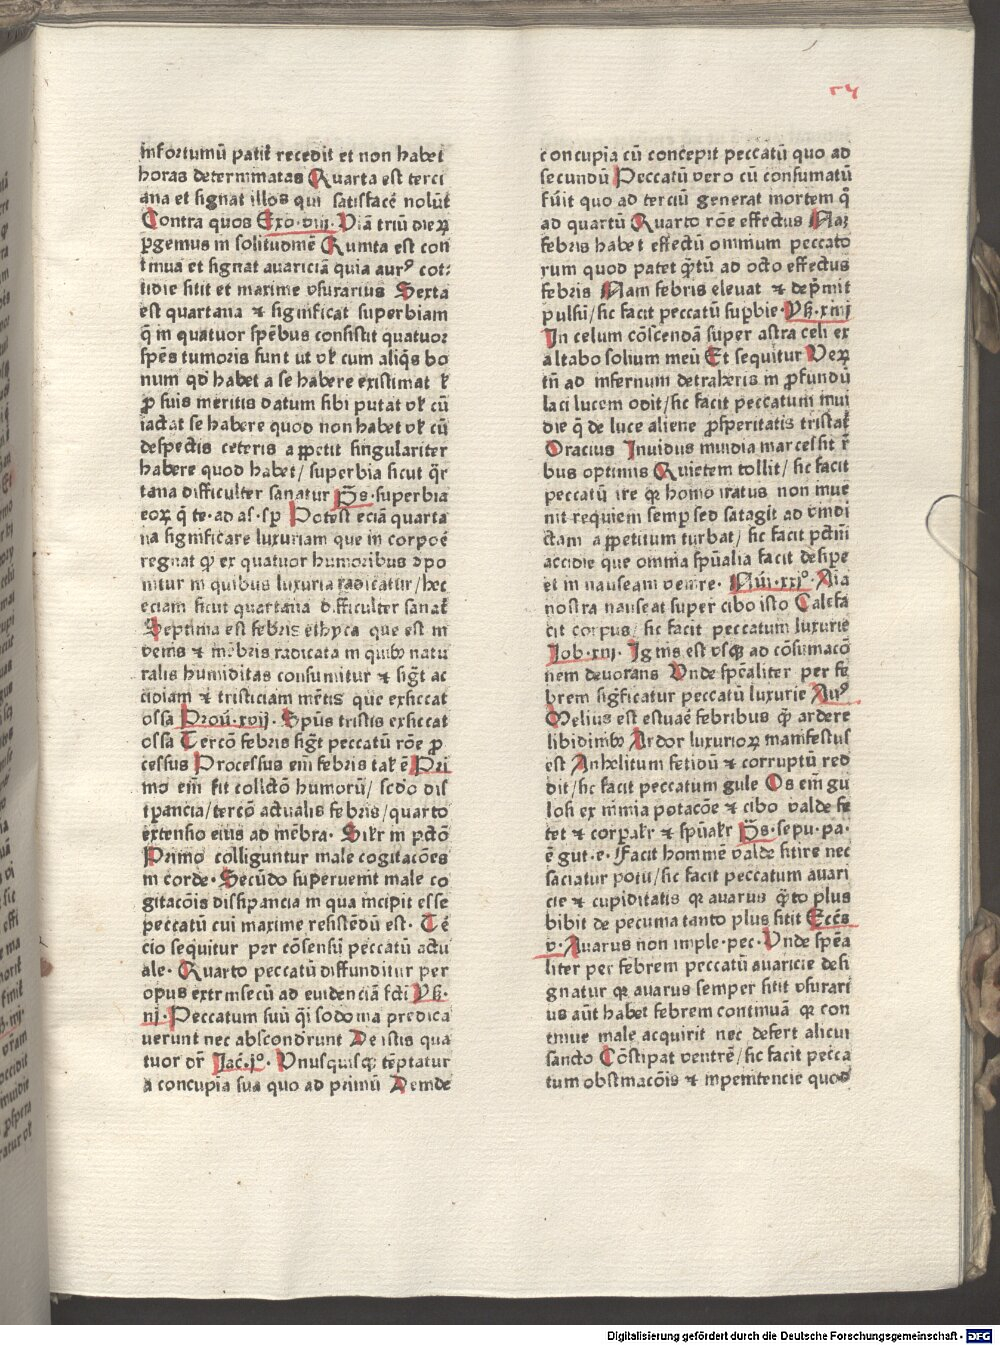 54
infortumū patit̄ recedit et non habet
horas determinatas Quarta est terci
ana et signat illos qui satisfacē nolūt
Contra quos Exo.viij. Viā triū dierꝝ
ꝑgemus in solitudinē Quinta est con
tinua et signat avariciā quia aurꝰ cot⸗
tidie sitit et maxime vsurarius Sexta
est quartana ⁊ significat superbiam
q̄ in quatuor spēbus consistit quatuor
spēs tumoris sunt ut vl̄ cum aliq̄s bo
num qd̄ habet a se habere existimat l̄
ꝓ suis meritis datum sibi putat vl̄ cū
iactat se habere quod non habet vl̄ cū
despectis ceteris appetit singulariter
habere quod habet/ superbia sicut q̄r
tana difficulter sanatur p̄s.superbia
eoꝝ q̄ te.ad as.sꝑ Potest eciā quarta
na significare luxuriam que in corpoē
regnat qꝫ ex quatuor humoribus ꝯpo
nitur in quibus luxuria radicatur/hec
eciam sicut quartana difficulter sanat̄
Septima est febris ethyca que est in
venis ⁊ mēbris radicata in quibꝰ natu
ralis humiditas consumitur ⁊ sigt̄ ac
cidiam ⁊ tristiciam mētis que exsiccat
ossa Prou.xvij. Spūs tristis exsiccat
ossa Tercō febris sigt̄ peccatū rōe ꝓ
cessus Processus em̄ febris tal̄ ē Pri
mo em̄ fit collctō humorū/ scdo dis
crpancia/tercō actualis febris/quarto
extensio eius ad mēbra. Sil̄r in pctō
Primo colliguntur male cogitacōes
in corde. Secūdo superueniunt male co
gitacōis discrepancia in qua incipit esse
peccatū cui maxime resistēdū est. Tē
cio sequitur per cōsensū peccatū actu
ale. Quarto peccatū diffunditur per
opus extrinsecū ad euidenciā fcti Ys.
iij. Peccatum suū q̄si sodoma predica
uerunt nec absconderunt De istis qua
tuor dr̄ Jac.jo. Vnusquisqꝫ tēptatur
a concupīa sua quo ad primū Deinde
concupīa cū concepit peccatū quo ad
secundū Peccatū vero cū consumatū
fūit quo ad terciū generat mortem q̄
ad quartū Quarto rōe effectus Nam
febris habet effectū omnium peccato
rum quod patet q̄tū ad octo effectus
febris Nam febris eleuat ⁊ dep̄mit
pulsū/sic facit peccatū supbie.Ys.xiiij
In celum cōscendā super astra celi ex
altabo solium meū Et sequitur Verū
tn̄ ad infernum detraheris in ꝓfundū
laci lucem odit/sic facit peccatum inui
die q̄ de luce aliene ꝓsperitatis tristat̄
Oracius Inuidus inuidia marcessit r̄
bus optimis Quietem tollit/ sic facit
peccatū ire qꝛ homo iratus non inue
nit requiem semꝑ sed satagit ad vindi
ctam appetitum turbat/ sic facit pctm̄
accidie que omnia sp̄ualia facit desipe
et in nauseam venire. Nūi.xxjº. Aīa
nostra nauseat super cibo isto Calefa
cit corpus/ sic facit peccatum luxurie
Job.xxxj. Ignis est vsqꝫ ad cōsumacō
nem deuorans Vnde spēaliter per fe
brem sigficatur peccatū luxurie Auº
Melius est estuaē febribus q̄ ardere
libidinibꝰ Ardor luxurioꝝ manifestus
est Anhelitum fetidū ⁊ corruptū red
dit/sic facit peccatum gule Os em̄ gu
losi ex nimia potacōe ⁊ cibo valde fe
tet ⁊ corꝑal̄r ⁊ sp̄ual̄r p̄s.sepu.pa.
ē gut.e. Facit hominē valde sitire nec
saciatur potu/sic facit peccatum auari
cie ⁊ cupiditatis qꝛ auarus q̄to plus
bibit de pecunia tanto plus sitit Ecc̄s
v. Auarus non imple.pec. Vnde spēa
liter per febrem peccatū auaricie desi
gnatur qꝛ auarus semper sitit vsurari
us aūt habet febrem continuā qꝛ con
tinue male acquirit nec defert alicui
sancto Cōstipat ventrē/sic facit pecca
tum obstinacōis ⁊ inpenitencie quod
Digitalisierung gefördert durch die Deutsche Forschungsgemeinschaft - DFG